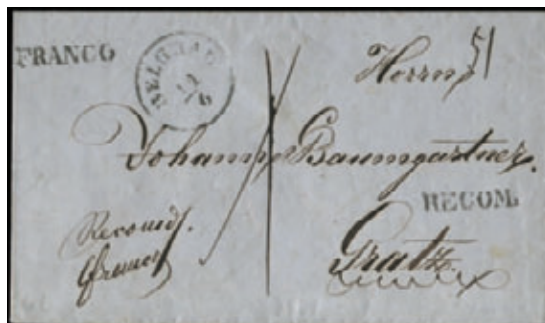 FRANCO
BELGRAD
Herrn
51
Johann Baumgartner.
RECOM.
Recomd.
franco
Gratz.